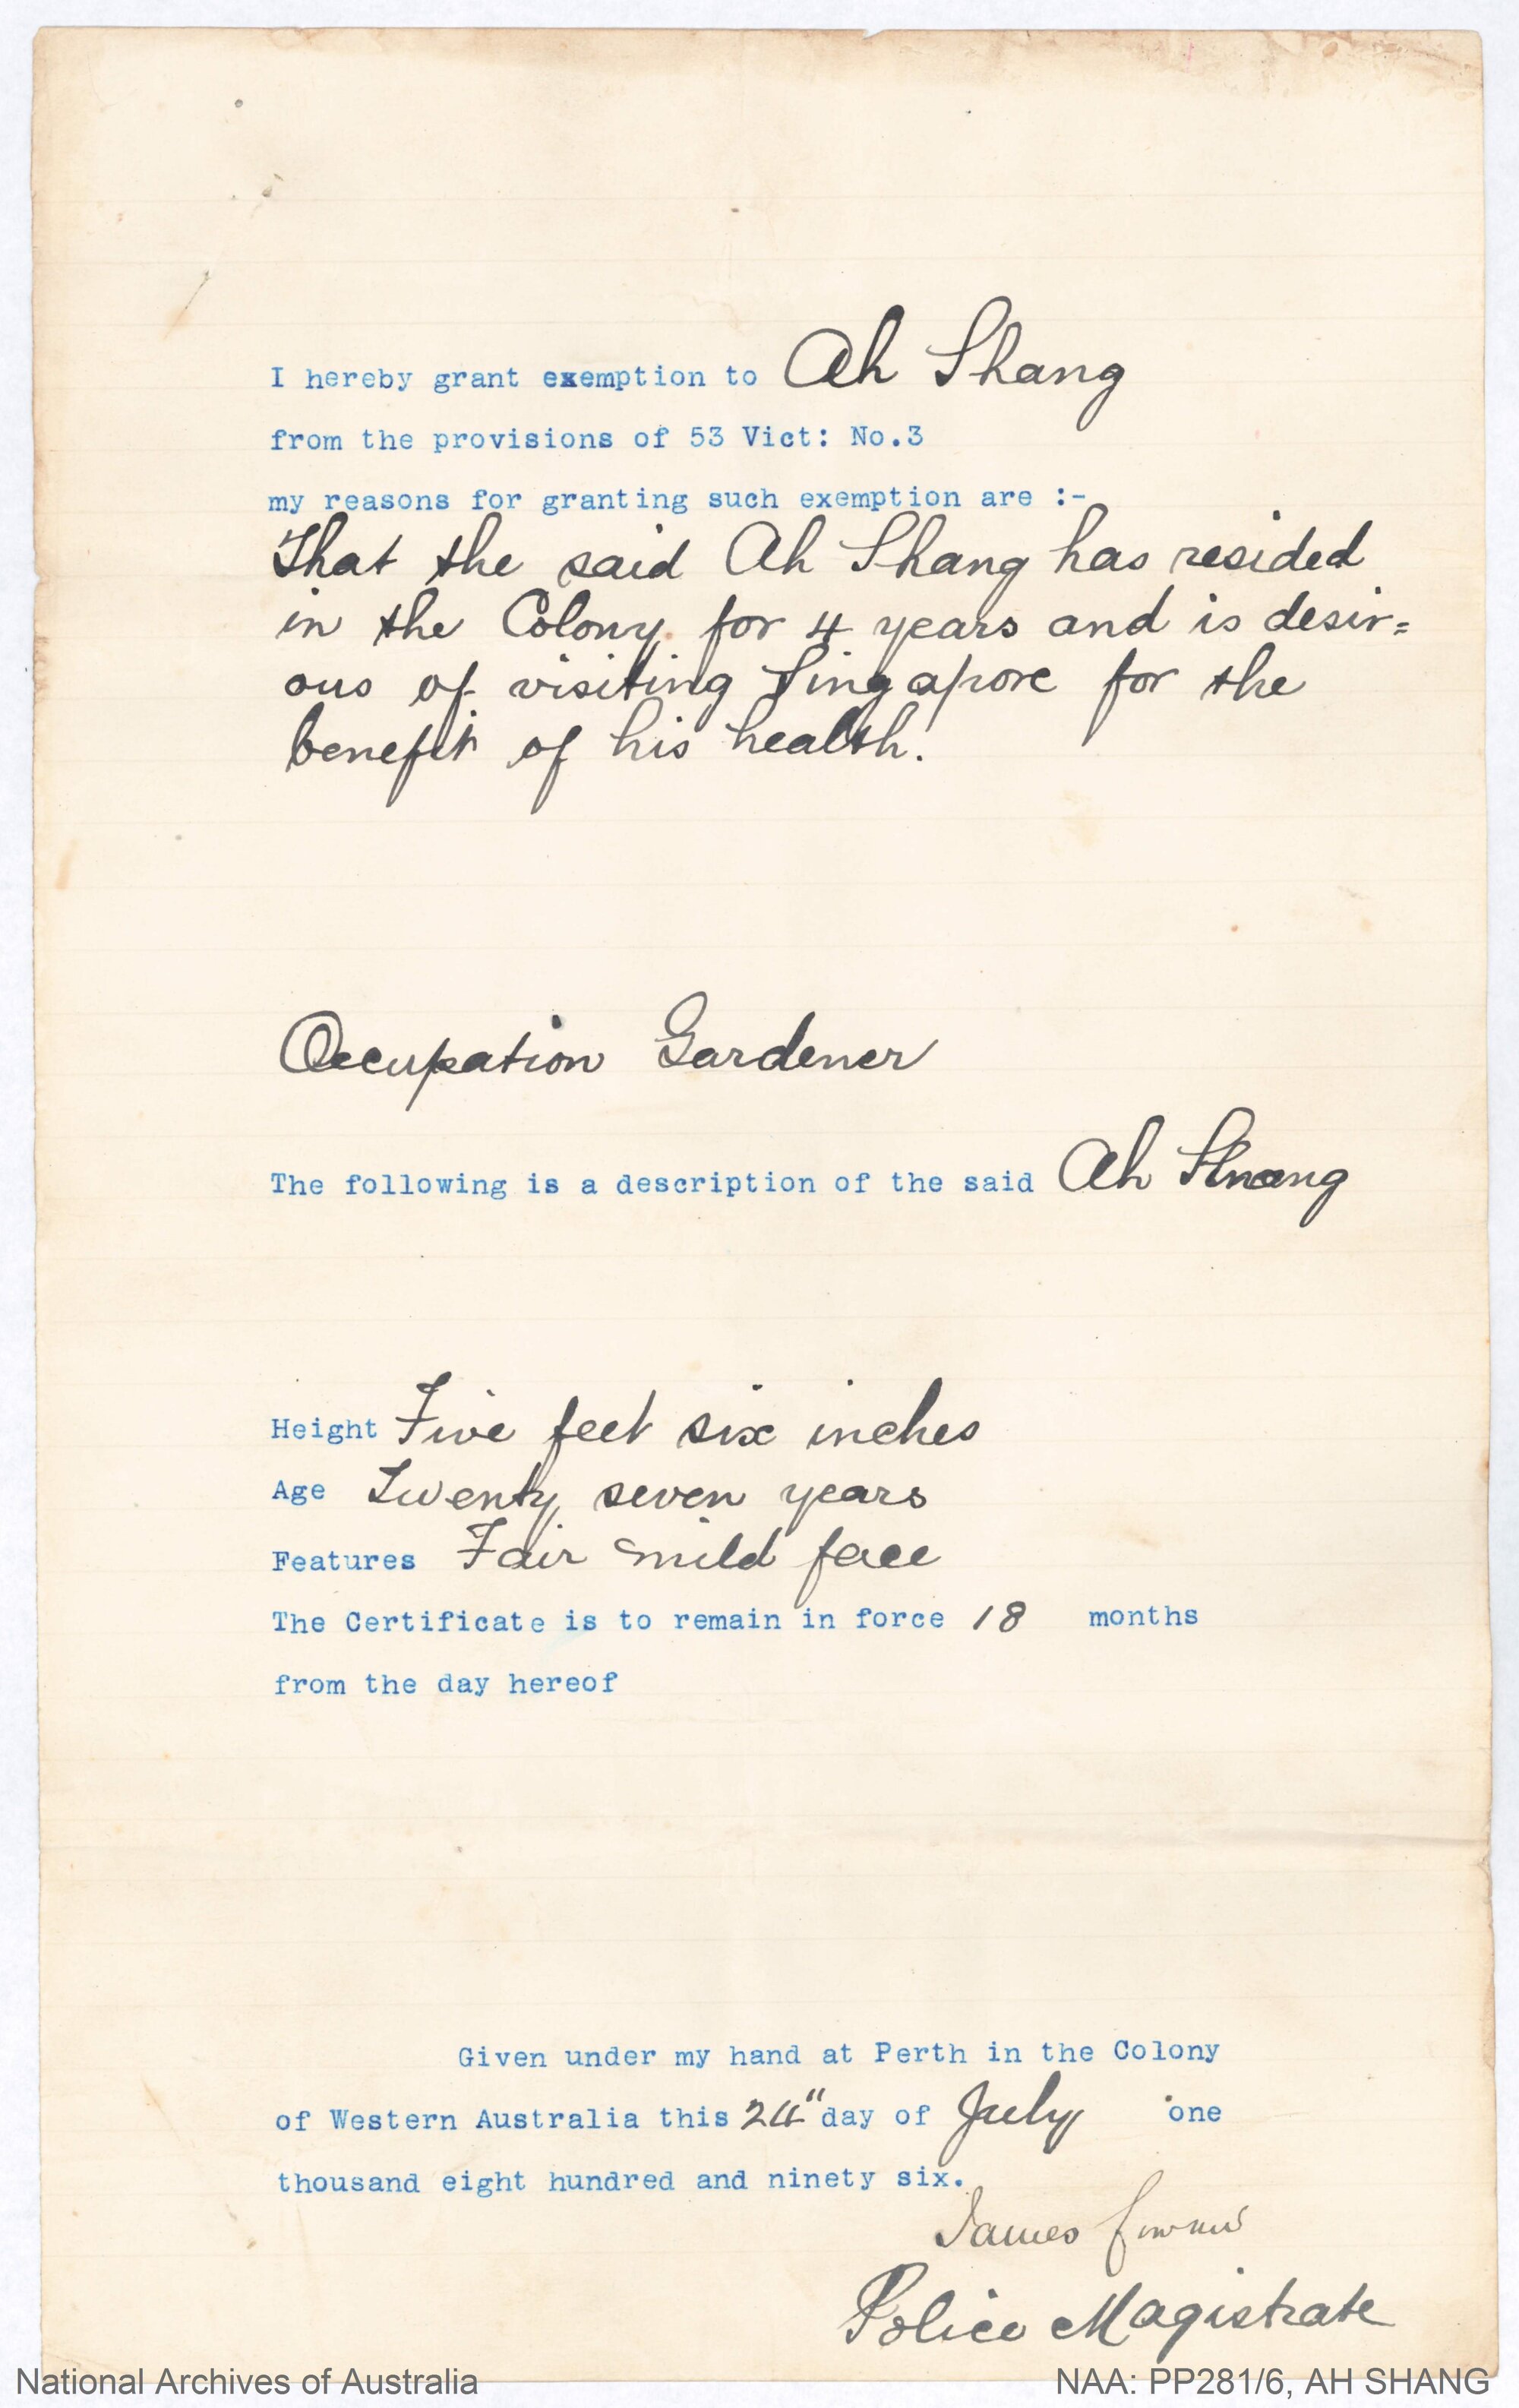 I hereby grant exemption to Ah Shang
from the provisions of 53 Vict: No.3
my reasons for granting such exemption are :-
That the said Ah Shang has resided
in the Colony for 4 years and is desir=
ous of visiting Singapore for the
benefit of his health.
Occupation Gardener
The following is a description of the said Ah Shang
Height Five feet six inches
Age Twenty seven years
Features Fair mild face
The Certificate is to remain in force 18 months
from the day hereof
Given under my hand at Perth in the Colony
of Western Australia this 24" day of July one
thousand eight hundred and ninety six.
James
Police Magistrate
National Archives of Australia
NAA: PP281/6, AH SHANG